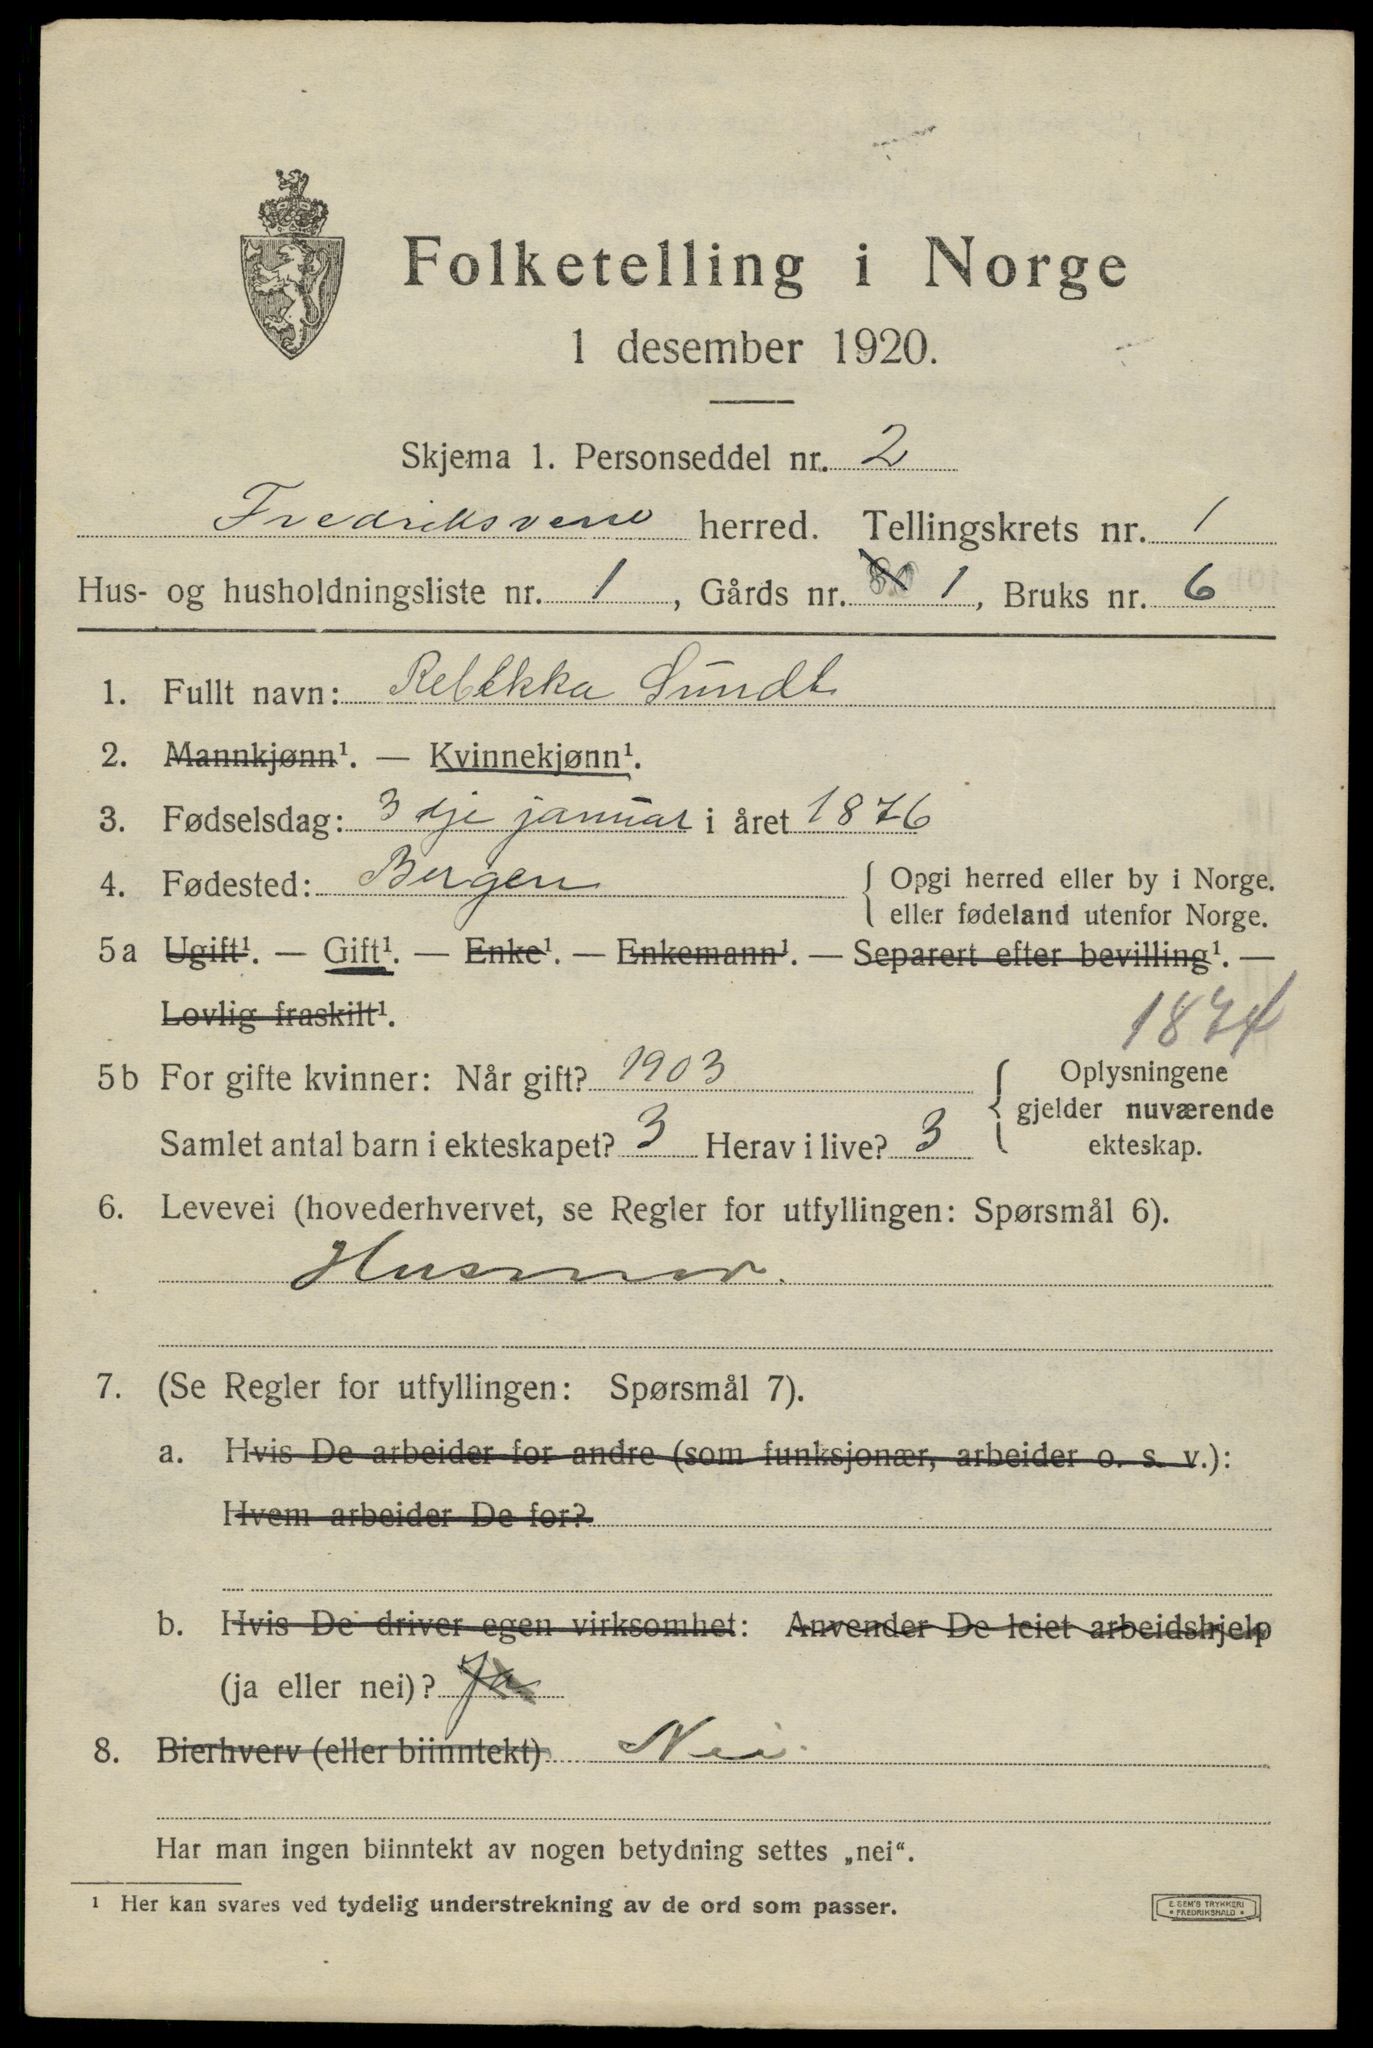 Folketelling i Norge
1 desember 1920.
Skjema 1. Personseddel nr. 2
Fredriksvern herred. Tellingskrets nr. 1
Hus- og husholdningsliste nr. 1, Gårds nr. 80 1, Bruks nr. 6
1. Fullt navn: Rebekka Sundt
2. Mannkjønn¹. — Kvinnekjønn¹.
3. Fødselsdag: 3 dje januar i året 1876
4. Fødested: Bergen { Opgi herred eller by i Norge.
eller fødeland utenfor Norge.
5a Ugift¹. — Gift¹. — Enke¹. — Enkemann¹. — Separert efter bevilling¹. —
Lovlig fraskilt¹.
5b For gifte kvinner: Når gift? 1903 { Oplysningene
gjelder nuværende
Samlet antal barn i ekteskapet? 3 Herav i live? 3 ekteskap.
6. Levevei (hovederhvervet, se Regler for utfyllingen: Spørsmål 6).
Husmor.
7. (Se Regler for utfyllingen: Spørsmål 7).
a. Hvis De arbeider for andre (som funksjonær, arbeider o. s. v.):
Hvem arbeider De for?
b. Hvis De driver egen virksomhet: Anvender De leiet arbeidshjelp
(ja eller nei)? Ja
8. Bierhverv (eller biinntekt) Nei.
Har man ingen biinntekt av nogen betydning settes „nei“.
¹ Her kan svares ved tydelig understrekning av de ord som passer.
E. SEM'S TRYKKERI
• FREDRIKSHALD •